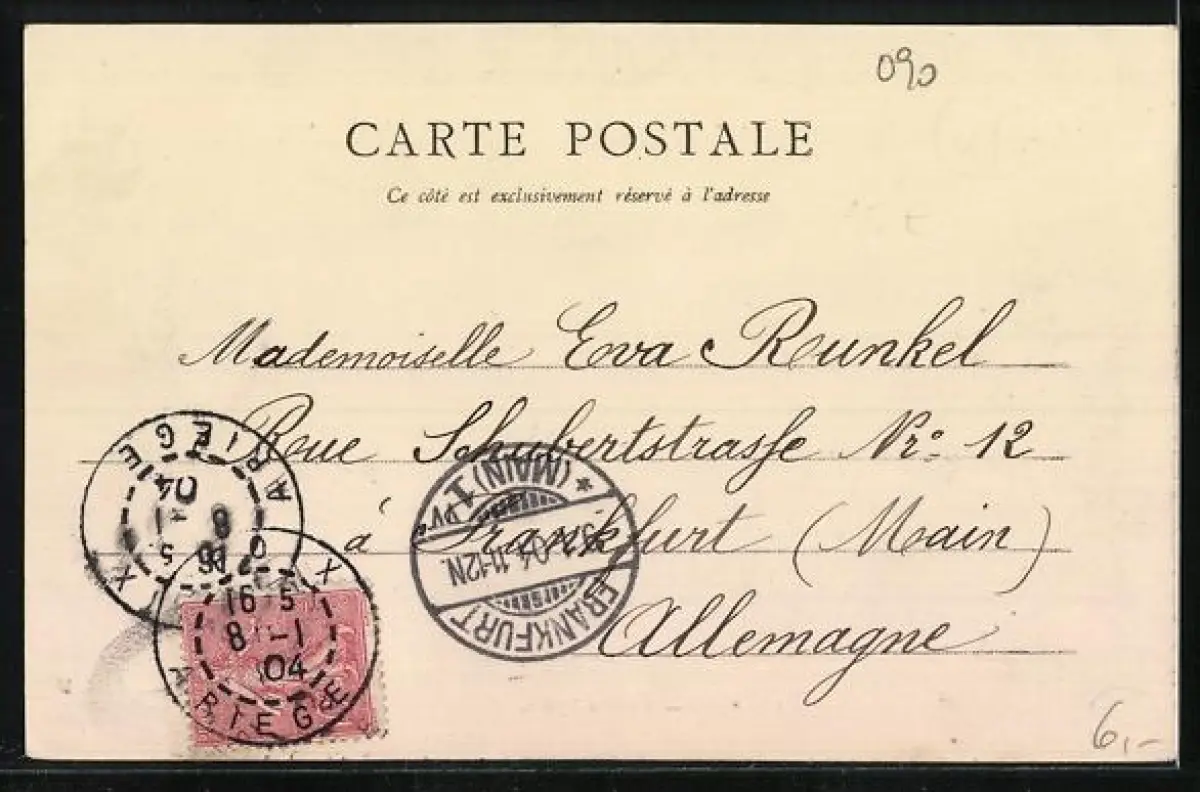 090
CARTE POSTALE
Ce côté est exclusivement réservé à l'adresse
Mademoiselle Eva Runkel
Roue Schubertstrasse Nr° 12
à Frankfurt (Main)
Allemagne
ARIEGE
04
16 5
8 -1
04
ARIEGE
* (MAIN) 1
04 11-12N.
FRANKFURT
6,-